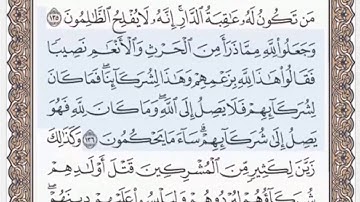 مَن تَكُونُ لَهُۥ عَٰقِبَةُ ٱلدَّارِۚ إِنَّهُۥ لَا يُفۡلِحُ ٱلظَّٰلِمُونَ ١٣٥
وَجَعَلُواْ لِلَّهِ مِمَّا ذَرَأَ مِنَ ٱلۡحَرۡثِ وَٱلۡأَنۡعَٰمِ نَصِيبٗا
فَقَالُواْ هَٰذَا لِلَّهِ بِزَعۡمِهِمۡ وَهَٰذَا لِشُرَكَآئِنَاۖ فَمَا كَانَ
لِشُرَكَآئِهِمۡ فَلَا يَصِلُ إِلَى ٱللَّهِۖ وَمَا كَانَ لِلَّهِ فَهُوَ
يَصِلُ إِلَىٰ شُرَكَآئِهِمۡۗ سَآءَ مَا يَحۡكُمُونَ ١٣٦ وَكَذَٰلِكَ
زَيَّنَ لِكَثِيرٖ مِّنَ ٱلۡمُشۡرِكِينَ قَتۡلَ أَوۡلَٰدِهِمۡ
شُرَكَآؤُهُمۡ لِيُرۡدُوهُمۡ وَلِيَلۡبِسُواْ عَلَيۡهِمۡ دِينَهُمۡۖ